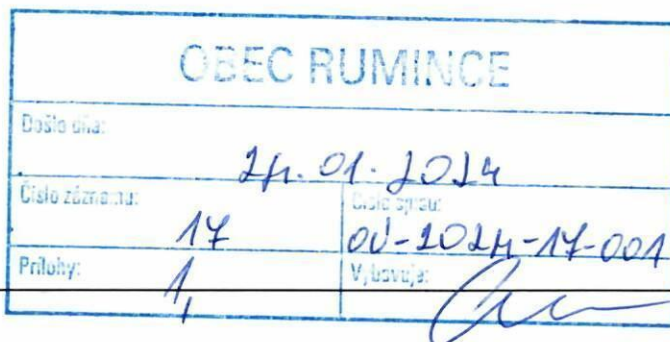 OBEC RUMINCE
Došlo dňa:
24.01.2024
Číslo záznamu:
17
Číslo spisu:
OÚ-2024-17-001
Prílohy:
1,
Vybavuje: